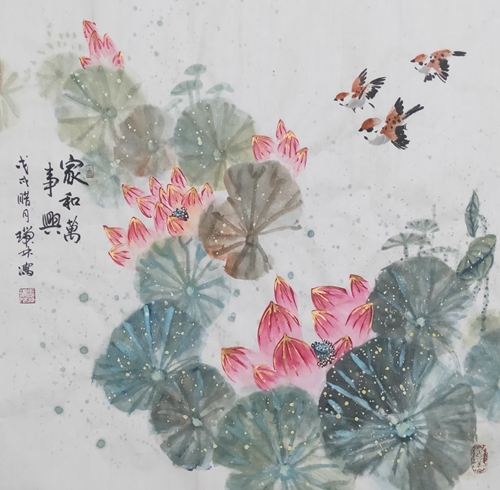 家和萬
事興
戊戌腊月